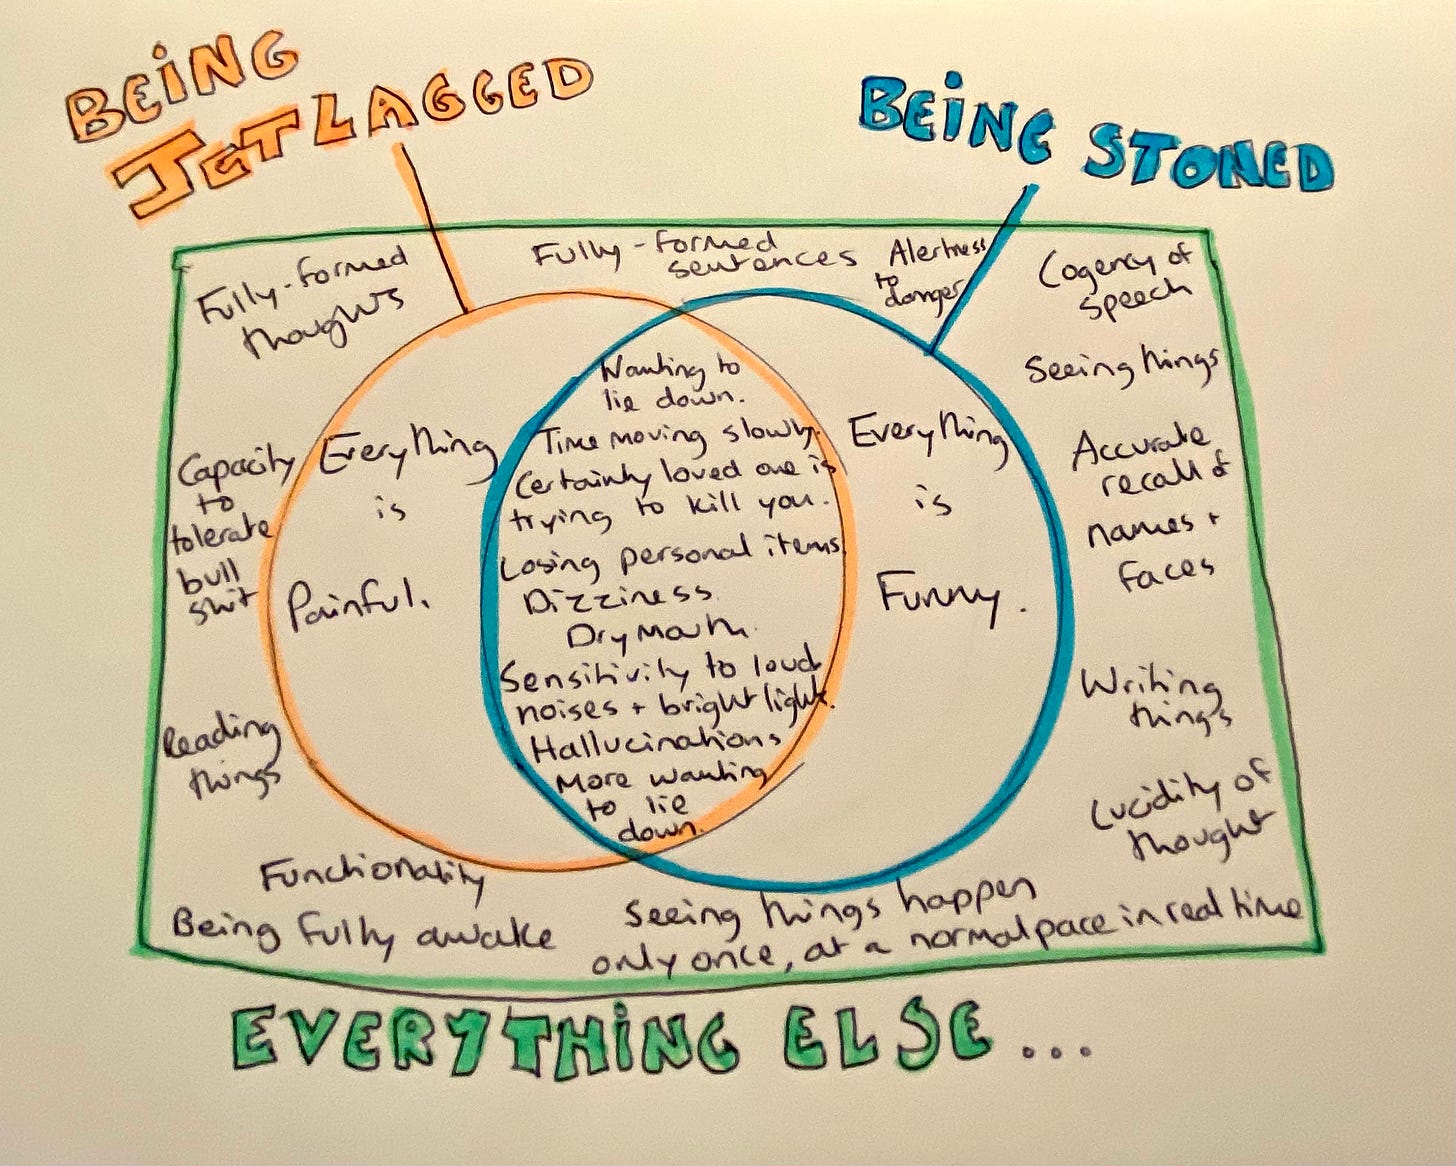 BEING
JETLAGGED
BEING STONED
Fully-formed
thoughts
Fully-formed
sentences
Alertness
to
danger
Cogency of
speech
Seeing things
Accurate
recall of
names +
faces
Writing
things
Lucidity of
thought
Capacity
to
tolerate
bull
shit
Reading
things
Everything
is
Painful.
Wanting to
lie down.
Time moving slowly.
Certainty loved one is
trying to kill you.
Losing personal items
Dizziness
Dry Mouth.
Sensitivity to loud
noises + bright light.
Hallucinations
More wanting
to lie
down.
Everything
is
Funny.
Functionality
Being fully awake
Seeing things happen
only once, at a normal pace in real time
EVERYTHING ELSE...